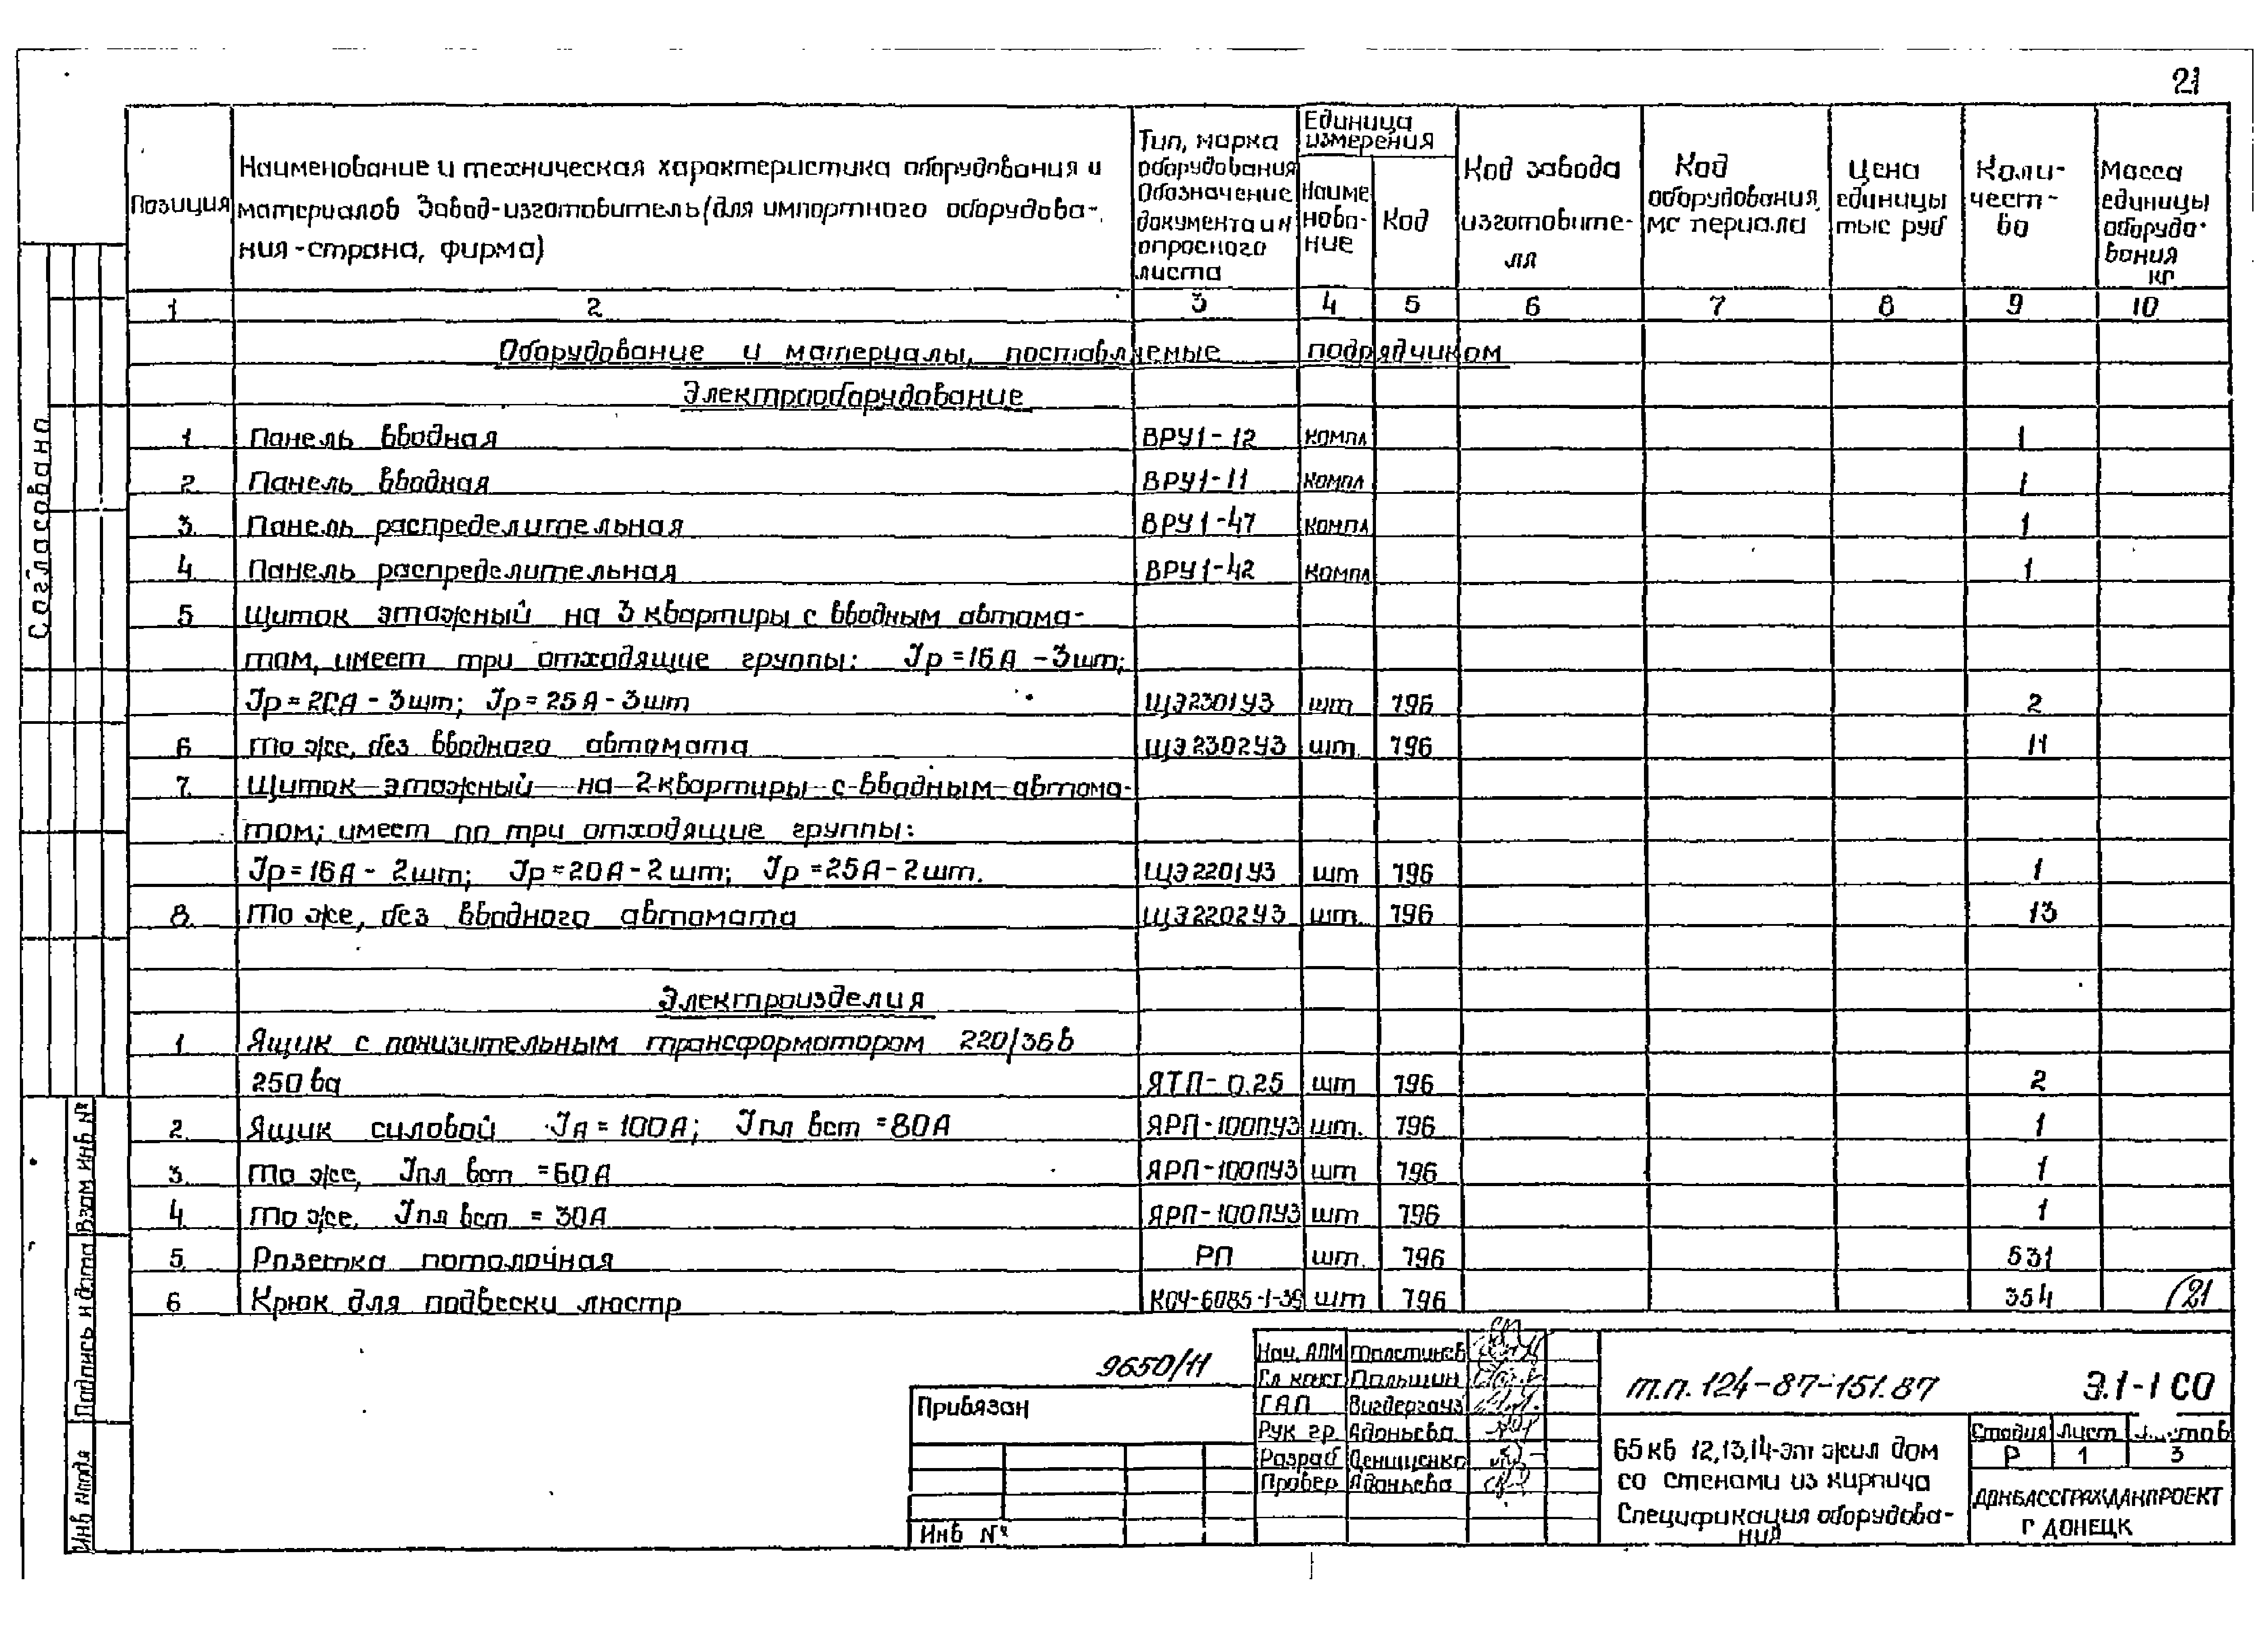 21
Позиция
Наименование и техническая характеристика оборудования и
материалов Завод-изготовитель (для импортного оборудова-
ния - страна, фирма)
Тип, марка
оборудования
Обозначение
документа и н
опросного
листа
Единица
измерения
Наиме
нова-
ние
Код
Код завода
изготовите-
ля
Код
оборудования,
материала
Цена
единицы
тыс руб
Коли-
чест-
во
Масса
единицы
оборудо-
вания
кг
1 2 3 4 5 6 7 8 9 10
Оборудование и материалы, поставляемые подрядчиком
Электрооборудование
1 Панель вводная ВРУ1-12 компл 1
2 Панель вводная ВРУ1-11 компл 1
3. Панель распределительная ВРУ1-47 компл 1
4 Панель распределительная ВРУ1-42 компл 1
5 Щиток этажный на 3 квартиры с вводным автома-
том, имеет три отходящие группы: Jр=16А - 3шт;
Jр=20А - 3шт; Jр=25А - 3шт ЩЭ2301У3 шт 796 2
6 То же, без вводного автомата ЩЭ2302У3 шт. 796 11
7. Щиток этажный на 2 квартиры с вводным автома-
том; имеет по три отходящие группы:
Jр=16А - 2шт; Jр=20А - 2шт; Jр=25А - 2шт. ЩЭ2201У3 шт 796 1
8. То же, без вводного автомата ЩЭ2202У3 шт. 796 13
Электроизделия
1. Ящик с понизительным трансформатором 220/36в
250 ва ЯТП-0.25 шт 796 2
2. Ящик силовой Jа=100А; Jпл вст =80А ЯРП-100ПУ3 шт. 796 1
3. То же, Jпл вст =60А ЯРП-100ПУ3 шт 796 1
4. То же, Jпл вст =30А ЯРП-100ПУ3 шт 796 1
5. Розетка потолочная РП шт. 796 531
6 Крюк для подвески люстр шт 796 354
21
9650/11
Привязан
Инв №
Нач. АПМ
Гл конст Пальшин
ГАП
Рук гр. Адоньева
Разраб Денищенко
Провер Адоньева
т.п. 124-87-151.87 Э.1-1 СО
65 кв 12,13,14-эт жил дом
со стенами из кирпича
Спецификация оборудова-
ния
Стадия Лист Листов
Р 1 3
ДОНБАССГРАЖДАНПРОЕКТ
г ДОНЕЦК
Согласовано
Взам инв №
Подпись и дата
Инв № подл